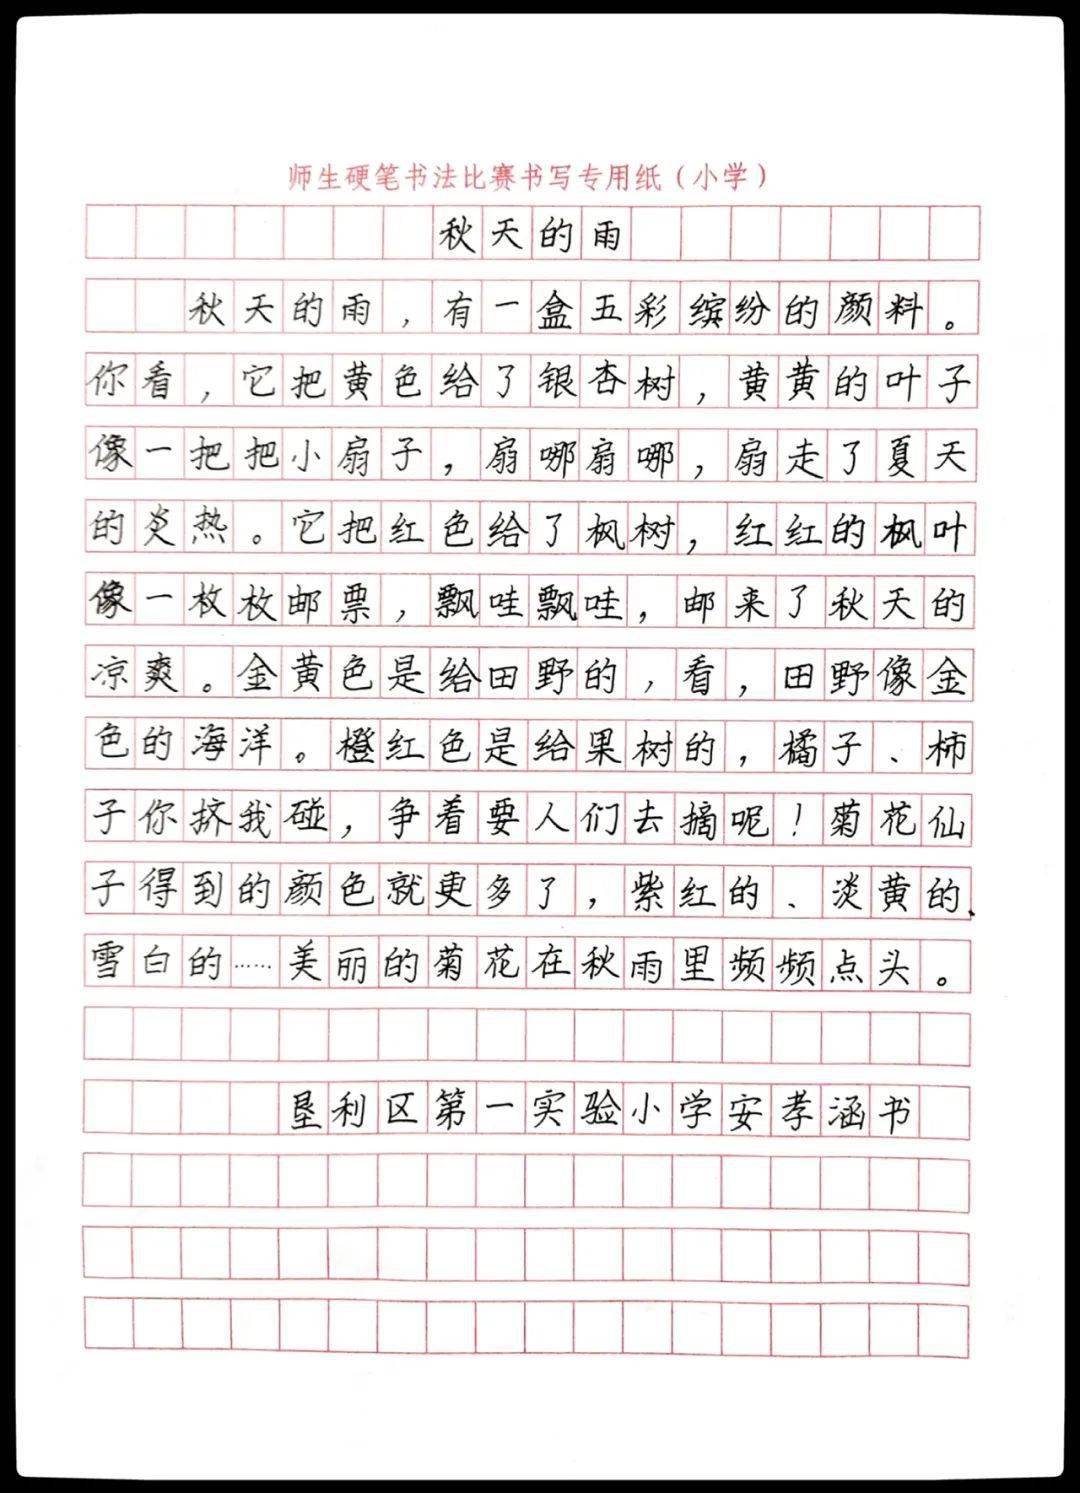 师生硬笔书法比赛书写专用纸（小学）
秋天的雨
秋天的雨，有一盒五彩缤纷的颜料。
你看，它把黄色给了银杏树，黄黄的叶子
像一把把小扇子，扇哪扇哪，扇走了夏天
的炎热。它把红色给了枫树，红红的枫叶
像一枚枚邮票，飘哇飘哇，邮来了秋天的
凉爽。金黄色是给田野的，看，田野像金
色的海洋。橙红色是给果树的，橘子、柿
子你挤我碰，争着要人们去摘呢！菊花仙
子得到的颜色就更多了，紫红的、淡黄的、
雪白的……美丽的菊花在秋雨里频频点头。
垦利区第一实验小学安孝涵书